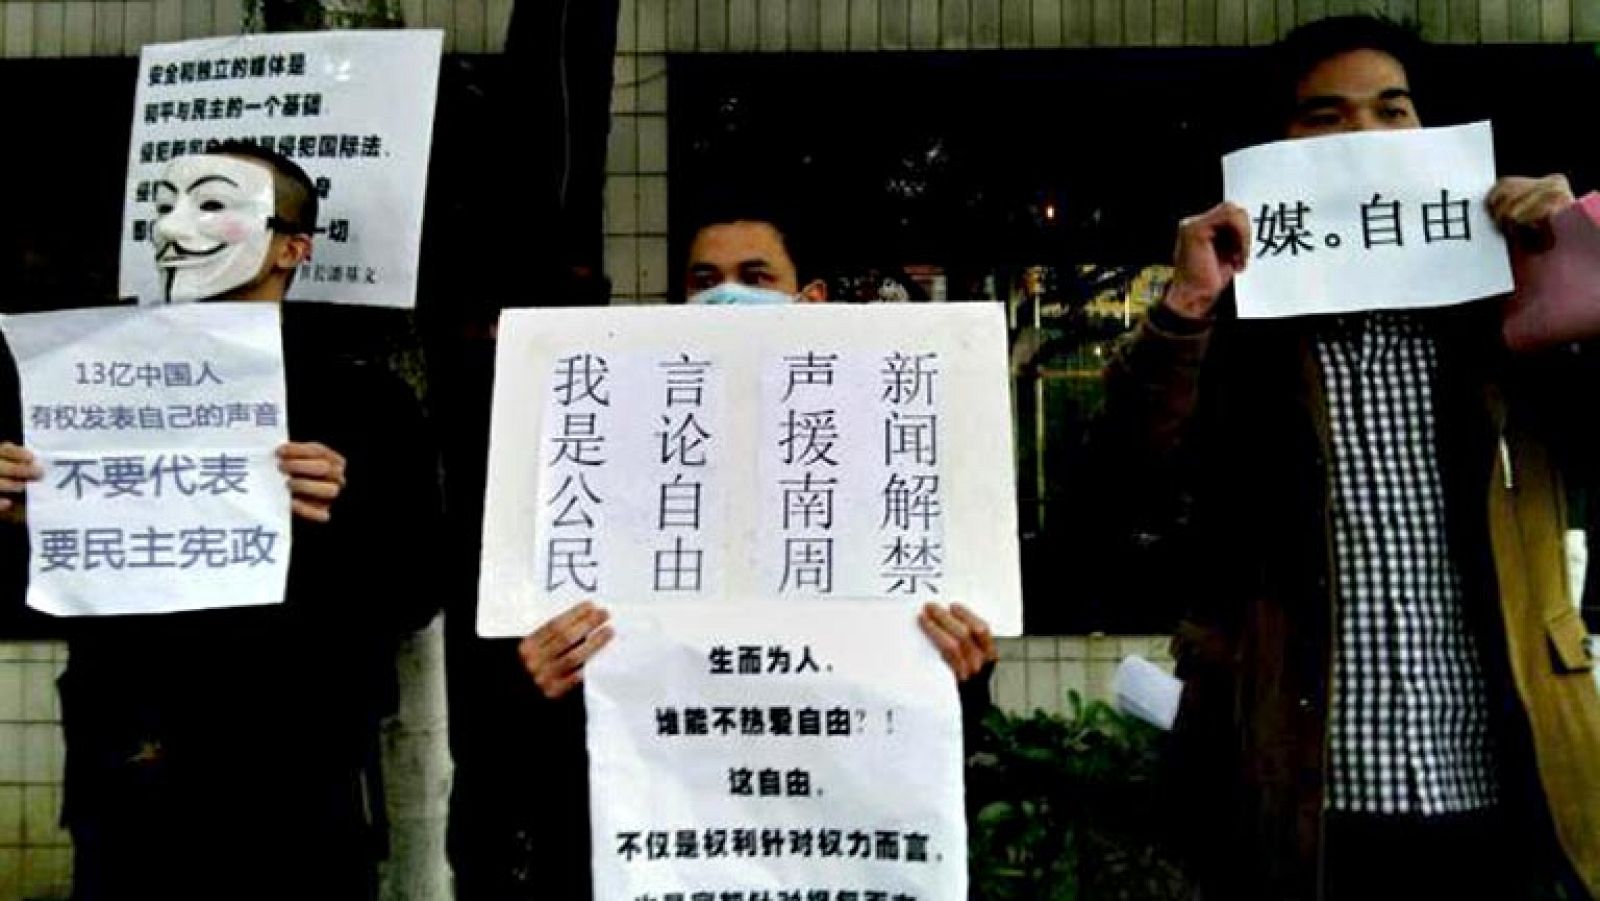 安全和独立的媒体是
和平与民主的一个基础.
侵犯国际法.
一切.
潘基文
13亿中国人
有权发表自己的声音
不要代表
要民主宪政
新闻解禁
声援南周
言论自由
我是公民
生而为人,
谁能不热爱自由?!
这自由,
不仅是权利针对权力而言,
媒。自由